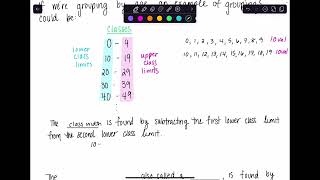 If were grouping by age, an example of groupings
could be:
classes
0 - 9
10 - 19
20 - 29
30 - 39
40 - 49
lower
class
limits
upper
class
limits
0, 1, 2, 3, 4, 5, 6, 7, 8, 9
10, 11, 12, 13, 14, 15, 16, 17, 18, 19
The class width is found by subtracting the first lower class limit
from the second lower class limit.
10 -
The also called a , is found by